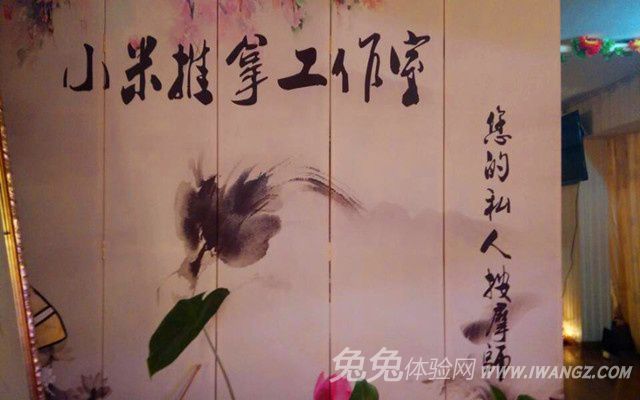 小米推拿工作室
您的私人按摩師
兔兔体验网 WWW.IWANGZ.COM